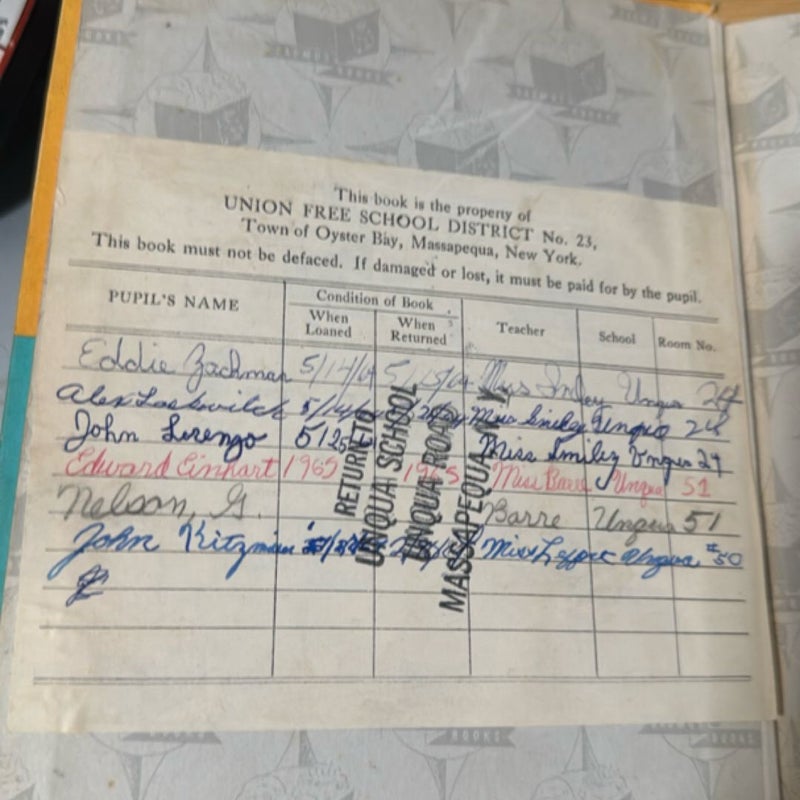 This book is the property of
UNION FREE SCHOOL DISTRICT No. 23,
Town of Oyster Bay, Massapequa, New York.
This book must not be defaced. If damaged or lost, it must be paid for by the pupil.
PUPIL'S NAME Condition of Book Teacher School Room No.
When Loaned When Returned
Eddie Zachman 5/14/64 5/15/64 Miss Smiley Unqua 24
Alex Loskovitch 5/14/64 Miss Smiley Unqua 24
John Lorenzo 5/25 Miss Smiley Unqua 24
Edward Einhart 1965 1965 Miss Barre Unqua 51
Nelson, G. Barre Unqua 51
John Kitzmiller Miss Unqua #50
RETURN TO
UNQUA SCHOOL
UNQUA ROAD
MASSAPEQUA, N. Y.
BOOKS